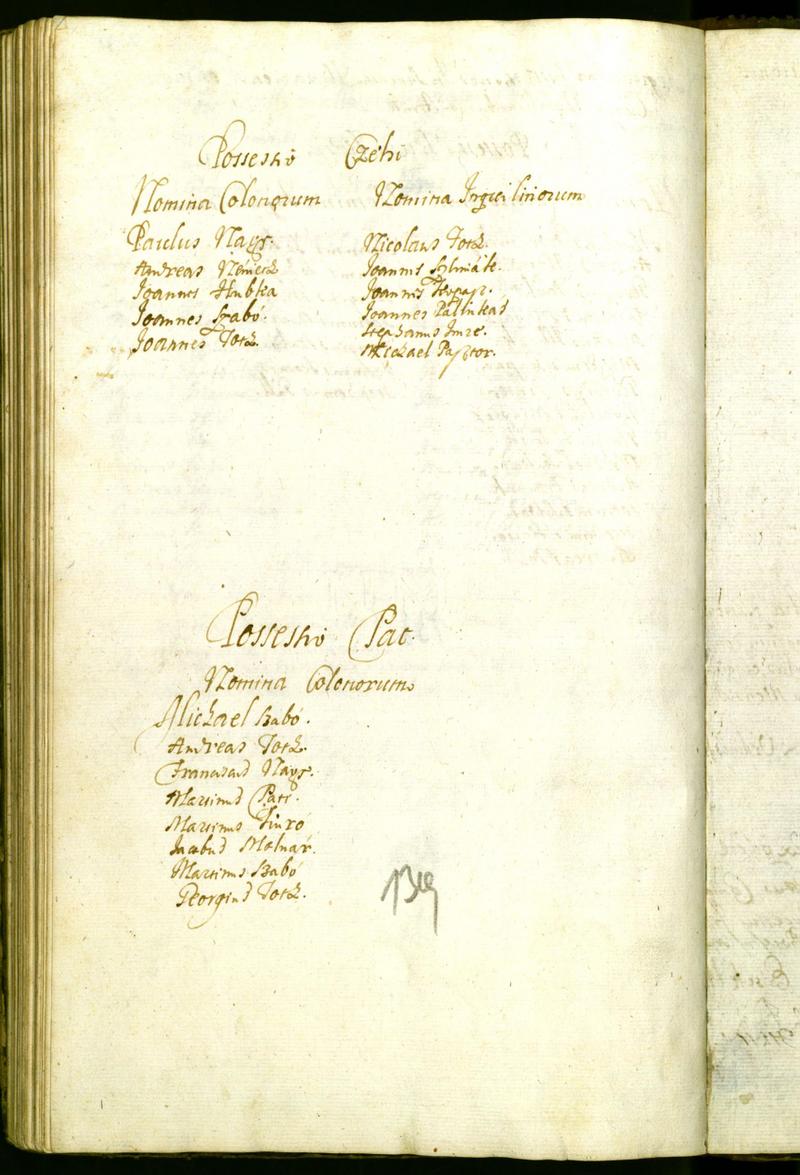 Possessio Czehi
Nomina Colonorum
Paulus Nagy.
Andreas Németh
Joannes Hubka
Joannes Szabó.
Joannes Toth.
Nomina Inquilinorum
Nicolaus Toth.
Joannes
Joannes
Joannes Palinkas
Stephanus Imre.
Michael Pasztor.
Possessio Pat.
Nomina Colonorum
Michael Szabó.
Andreas Toth.
Franciscus Nagy.
Martinus Pati.
Martinus
Jacobus Molnár.
Martinus Szabó
Georgius Toth.